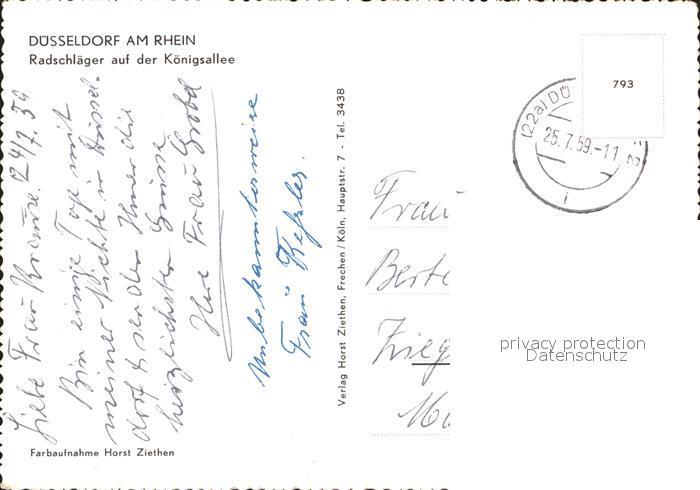 DÜSSELDORF AM RHEIN
Radschläger auf der Königsallee
Liebe Frau Krause. 24/7.59
Bin einige Tage mit
meiner Nichte in Düssel-
dorf & sende Ihnen die
herzlichsten Grüsse
Ihre Frau Grobel
Unbekannterweise
Frau Keßler.
Farbaufnahme Horst Ziethen
Verlag Horst Ziethen, Frechen/Köln, Hauptstr. 7 - Tel. 3438
793
(22a) DÜ
25.7.59.-11
Frau
Berta
Krieg
privacy protection
Datenschutz